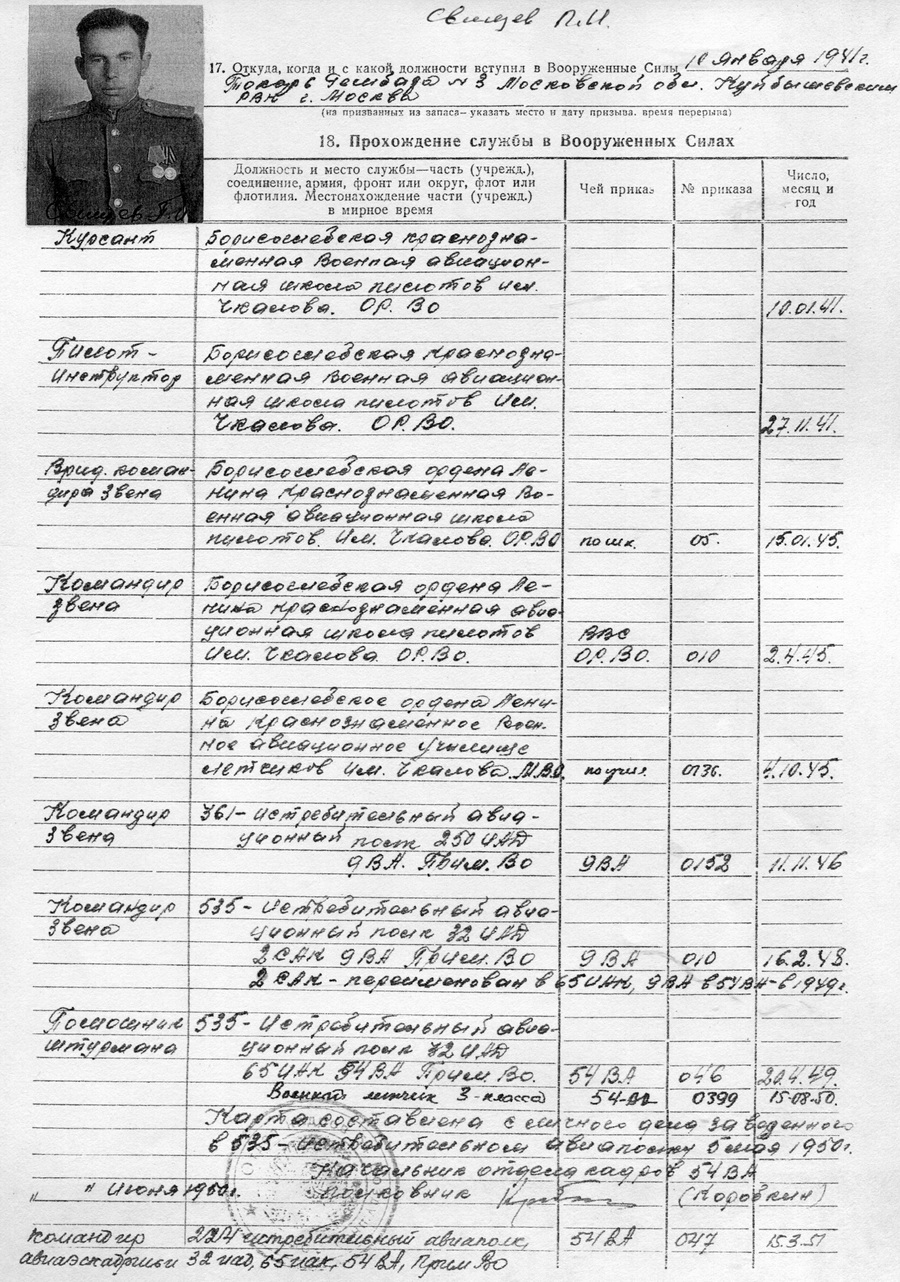 Свищев П.И.
17. Откуда, когда и с какой должности вступил в Вооруженные Силы 10 января 1941г.
Токарь №3 Московской обл. Куйбышевским
РВК г. Москва
(из призванных из запаса— указать место и дату призыва, время перерыва)
Свищев П.И.
18. Прохождение службы в Вооруженных Силах
Должность и место службы—часть (учрежд.), соединение, армия, фронт или округ, флот или флотилия. Местонахождение части (учрежд.) в мирное время
Чей приказ
№ приказа
Число, месяц и год
Курсант Борисоглебская краснозна-
менная Военная авиацион-
ная школа пилотов им.
Чкалова. ОР. ВО 10.01.41.
Пилот- Борисоглебская Краснозна-
инструктор менная Военная авиацион-
ная школа пилотов Им.
Чкалова. ОР.ВО. 27.11.41.
Врид. коман- Борисоглебская ордена Ле-
дира звена нина Краснознаменная Во-
енная авиационная школа
пилотов. Им. Чкалова. ОР.ВО по шк. 05. 15.01.45.
Командир Борисоглебская ордена Ле-
звена нина краснознаменная авиа-
ционная школа пилотов ВВС
Им. Чкалова. ОР.ВО. ОР.ВО. 010 2.4.45.
Командир Борисоглебское ордена Лени-
звена на Краснознамённое Воен-
ное авиационное училище
летчиков Им. Чкалова. М.ВО. по учил. 0136. 4.10.45.
Командир 361- Истребительный авиа-
звена ционный полк 250 ИАД
9ВА. Прим. ВО 9ВА 0152 11.11.46
Командир 535- Истребительный авиа-
звена ционный полк 32 ИАД
2 САК 9ВА Прим. ВО 9ВА 010 16.2.48.
2 САК - переименован в 65 ИАК, 9ВА в 54ВА - в 1949г.
Помощник 535- Истребительный авиа-
штурмана ционный полк 32 ИАД
65ИАК 54ВА Прим. ВО. 54ВА 046 20.4.49.
Военный летчик 3-класса 54-ВА 0399 15-08-50.
Карта составлена с личного дела заведенного
в 535- истребительном авиаполку 5 мая 1950г.
Начальник отдела кадров 54ВА
„ „ Июня 1950г. полковник (Коровкин)
командир 224 истребительный авиаполк, 54 ВА 047 15.3.51
авиаэскадрильи 32 иад, 65 иак, 54 ВА, Прим ВО